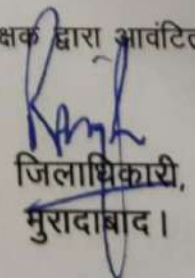 क्षक द्वारा आवंटित
जिलाधिकारी,
मुरादाबाद।